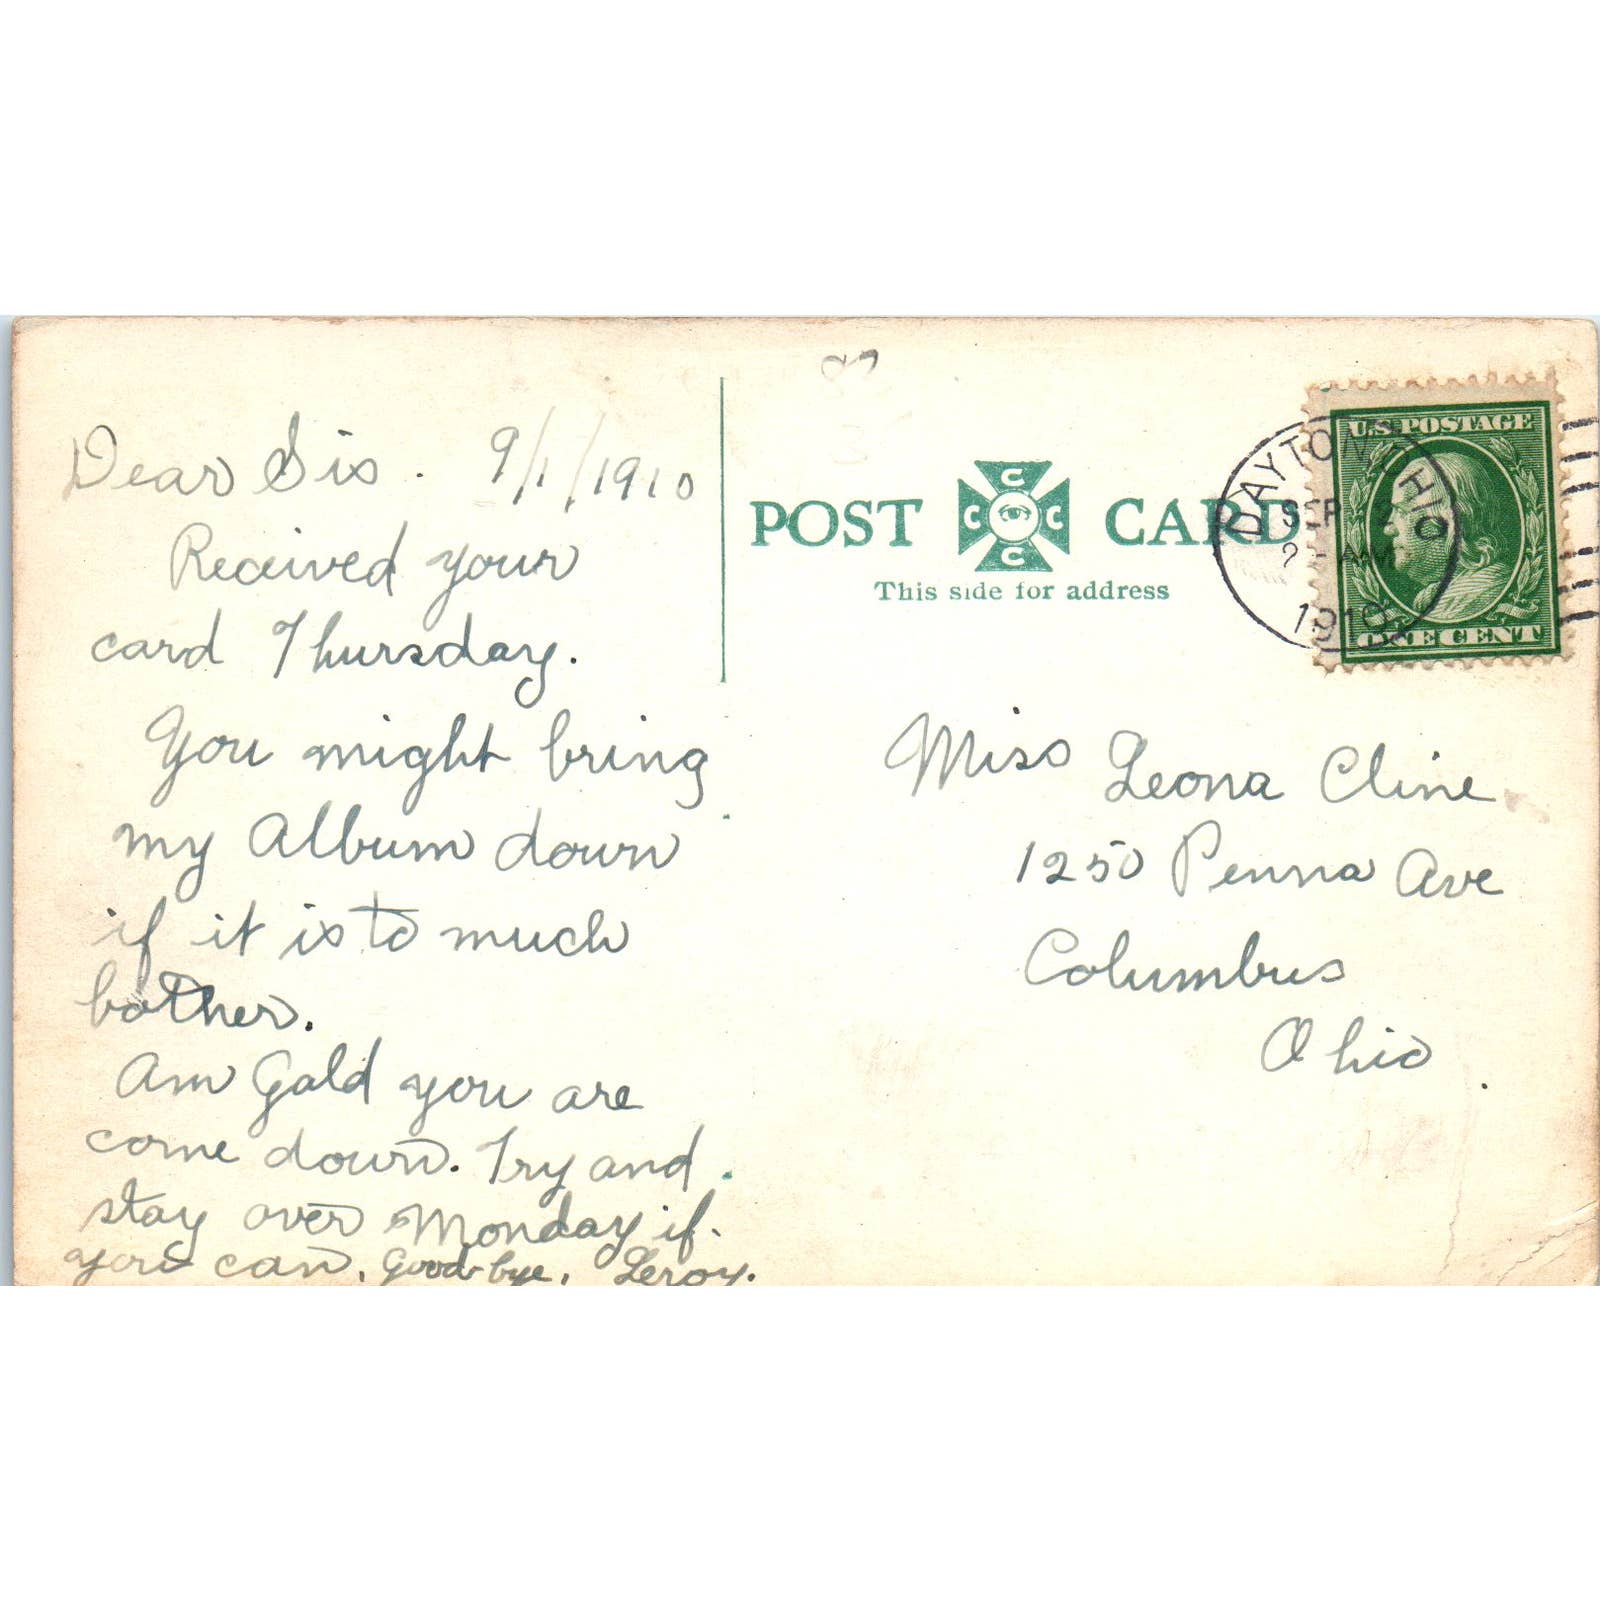 Dear Sis. 9/1/1910
Received your
card Thursday.
You might bring
my Album down
if it is to much
bother.
Am Gald you are
come down. Try and
stay over Monday if
you can. Good-bye. Leroy.
87
POST CARD
C C C C
This side for address
DAYTON, OHIO
SEP
AM
1910
U.S. POSTAGE
ONE CENT
Miss Leona Cline
1250 Penna Ave
Columbus
Ohio